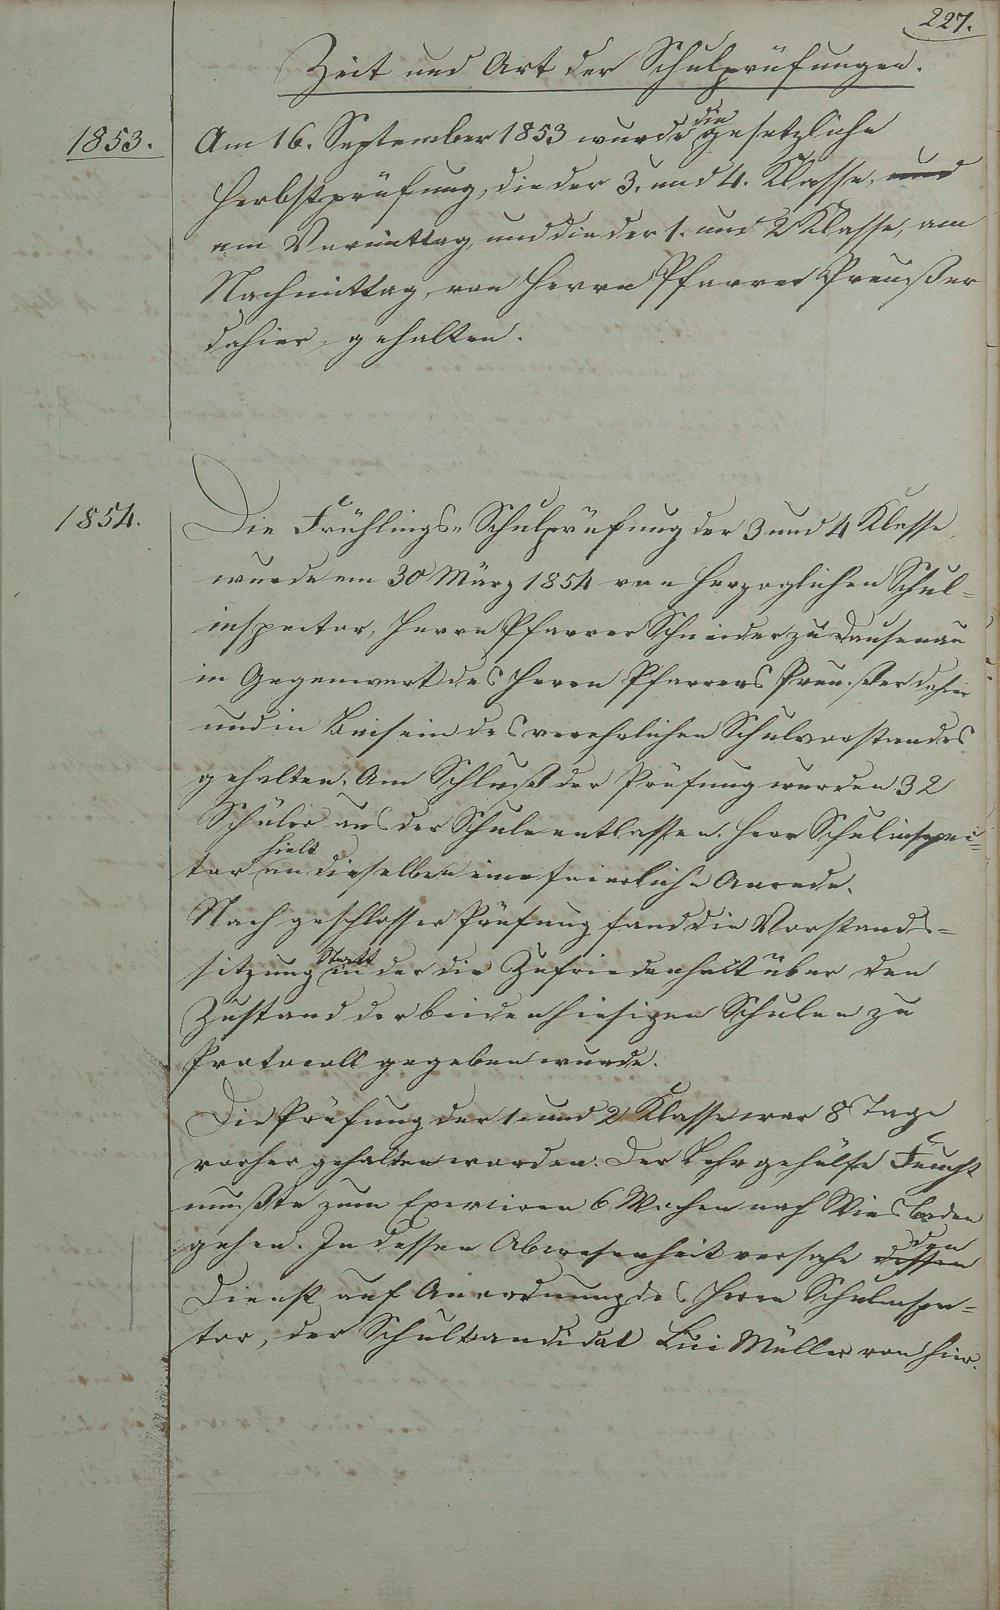 227.
Zeit und Art der Schulprüfungen.
1853.
Am 16. September 1853 wurde die gesetzliche
Herbstprüfung, die der 3. und 4. Klasse, und
am Vormittag, und die der 1. und 2 Klasse, am
Nachmittag, von Herrn Pfarrer Preußer
dahier, gehalten.
1854.
Die Frühlings-Schulprüfung der 3 und 4 Klasse,
wurde am 30 März 1854 von Herzoglichen Schul-
inspector, Herrn Pfarrer Schneider zu Dausenau
in Gegenwart des Herrn Pfarrers Preußer dahier
und in Beisein des verehrlichen Schulvorstandes
gehalten. Am Schluß der Prüfung wurden 32
Schüler aus der Schule entlassen. Herr Schulinspec-
tor hielt an dieselben eine feierliche Anrede.
Nach geschlosser Prüfung fand die Vorstands-
sitzung Statt in der die Zufriedenheit über den
Zustand der beiden hiesigen Schulen zu
Protocoll gegeben wurde.
Die Prüfung der 1. und 2 Klasse war 8 Tage
vorher gehalten worden. Der Lehrgehülfe Feucht
mußte zum Exerciren 6 Wochen nach Wiesbaden
gehen. In dessen Abwesenheit versahe dessen den
Dienst auf Anordnung des Herrn Schulinspec-
tor, der Schulkandidat Müller von hier.